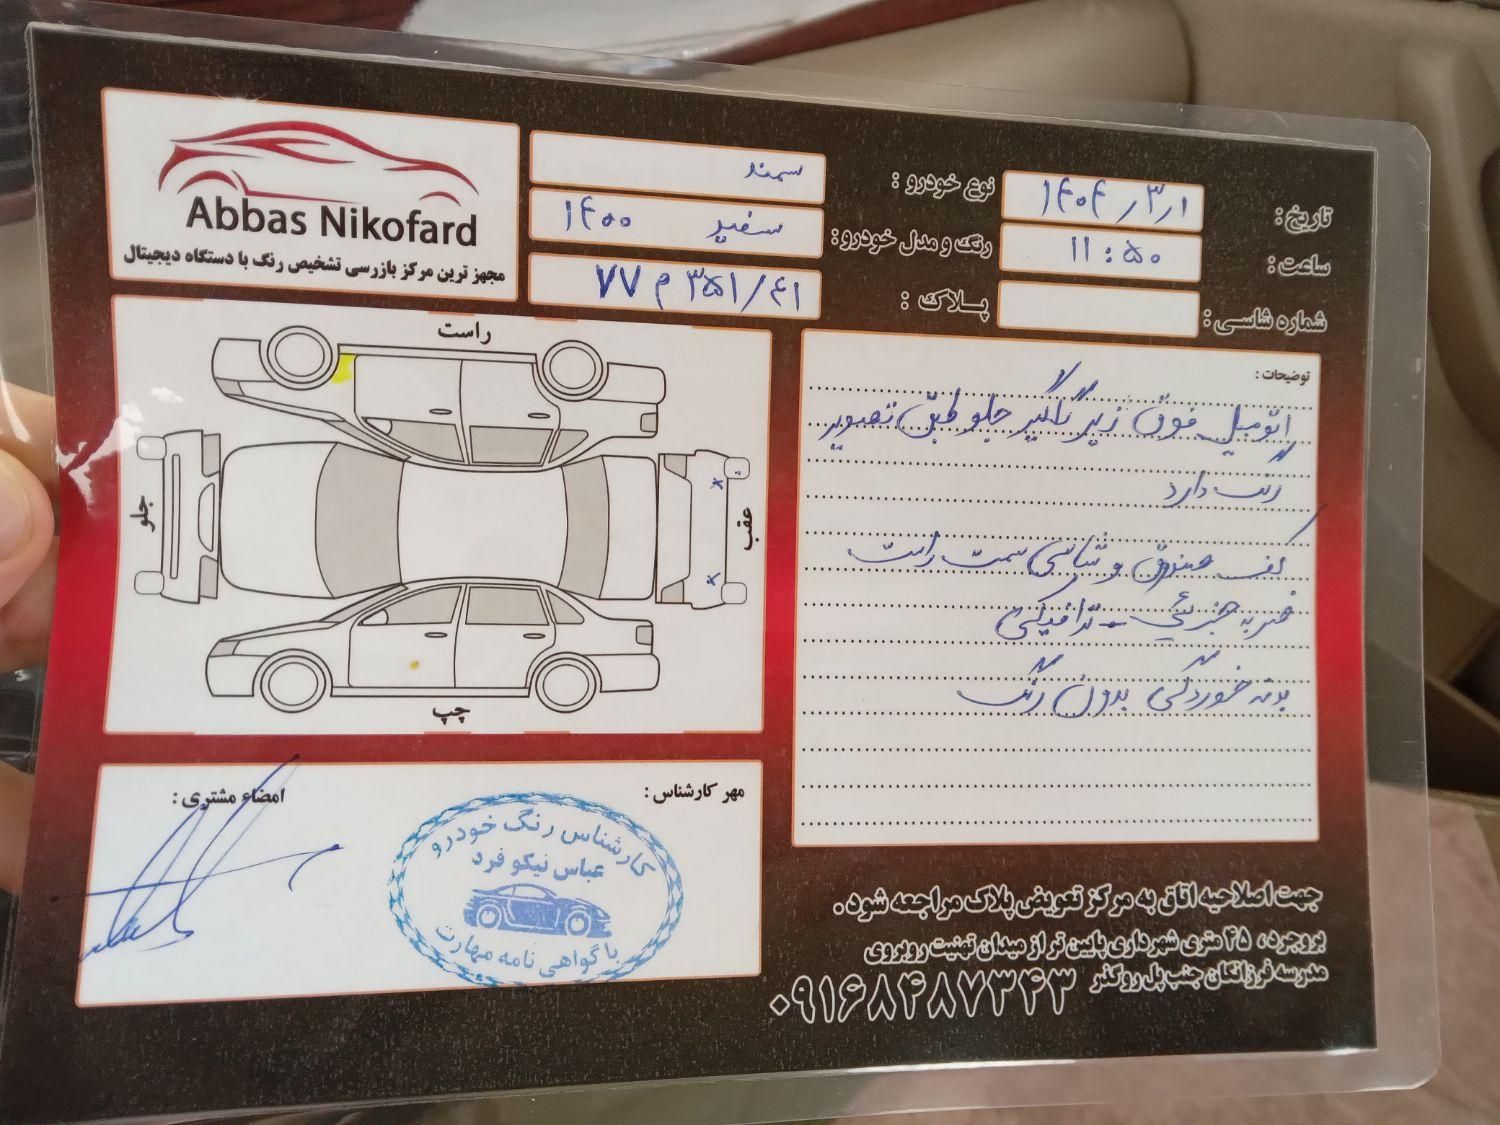 Abbas Nikofard
مجهز ترین مرکز بازرسی تشخیص رنگ با دستگاه دیجیتال
تاریخ : ۱۴۰۴/۳/۱
ساعت : ۱۱:۵۰
شماره شاسی :
نوع خودرو : سمند
رنگ و مدل خودرو : سفید ۱۴۰۰
پــلاک : ۷۷ م ۳۵۱/۴۱
راست
جلو
عقب
چپ
توضیحات :
اتومبیل فوق زیر گلگیر جلو طبق تصویر
رنگ دارد
کف صندوق و شاسی سمت راست
ضربه جزئی - ترافیکی
بدنه خوردگی بدون رنگ
امضاء مشتری :
مهر کارشناس :
کارشناس رنگ خودرو
عباس نیکو فرد
با گواهی نامه مهارت
جهت اصلاحیه اتاق به مرکز تعویض پلاک مراجعه شود.
بروجرد، ۴۵ متری شهرداری پایین تر از میدان تهنیت روبروی
مدرسه فرزانگان جنب پل روگذر ۰۹۱۶۸۴۸۷۳۴۳